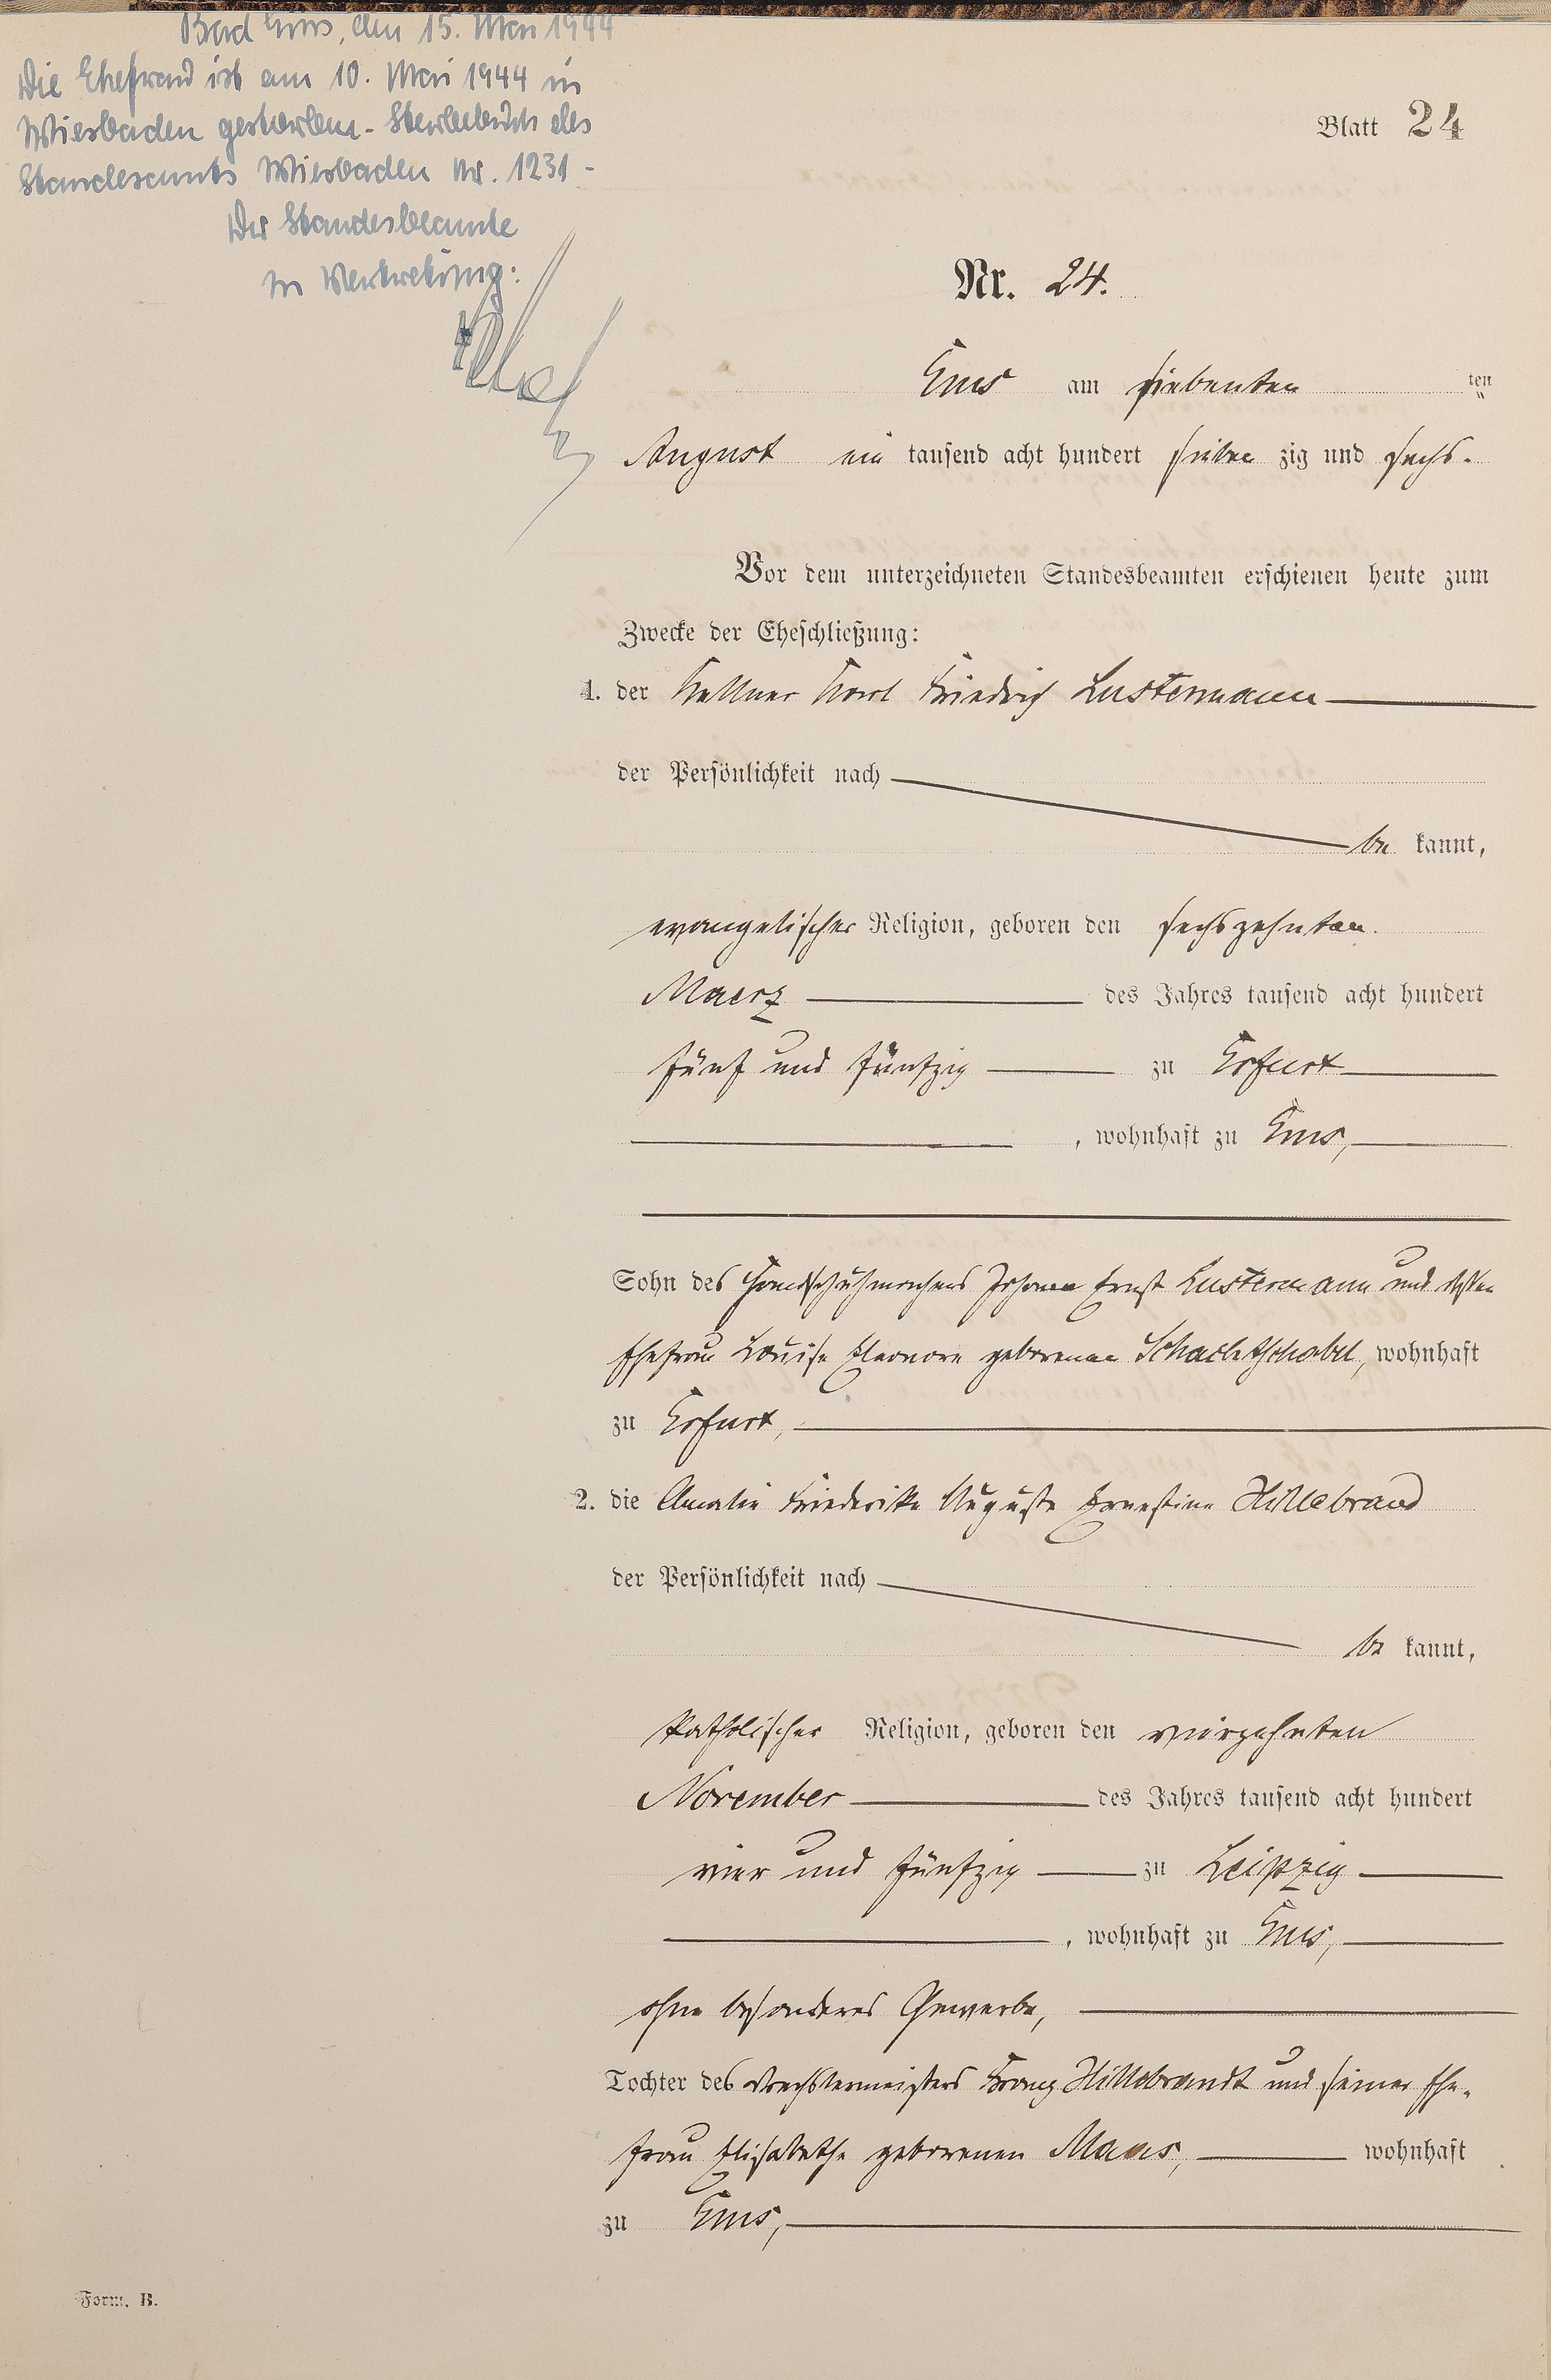 Bad Ems, den 15. Mai 1944
Die Ehefrau ist am 10. Mai 1944 in
Wiesbaden gestorben - Sterbebuch des
Standesamts Wiesbaden Nr. 1231 -
Der Standesbeamte
In Vertretung:
Blatt 24
Nr. 24.
Ems am siebenten ten
August ein tausend acht hundert sieben zig und sechs.
Vor dem unterzeichneten Standesbeamten erschienen heute zum
Zwecke der Eheschließung:
1. der Kellner Karl Friedrich Lustermann
der Persönlichkeit nach
be kannt,
evangelischer Religion, geboren den sechszehnten
Maerz des Jahres tausend acht hundert
fünf und fünfzig zu Erfurt
, wohnhaft zu Ems,
Sohn des Handschuhmachers Johann Ernst Lustermann und dessen
Ehefrau Louise Eleonore geborenen Schachtschabel, wohnhaft
zu Erfurt,
2. die Amalie Friederike Auguste Ernestine Hillebrand
der Persönlichkeit nach
be kannt,
katholischer Religion, geboren den vierzehnten
November des Jahres tausend acht hundert
vier und fünfzig zu Leipzig
, wohnhaft zu Ems,
ohne besonderes Gewerbe,
Tochter des Drechslermeisters Franz Hillebrandt und seiner Ehe-
frau Elisabethe geborenen Maas, wohnhaft
zu Ems,
Form. B.